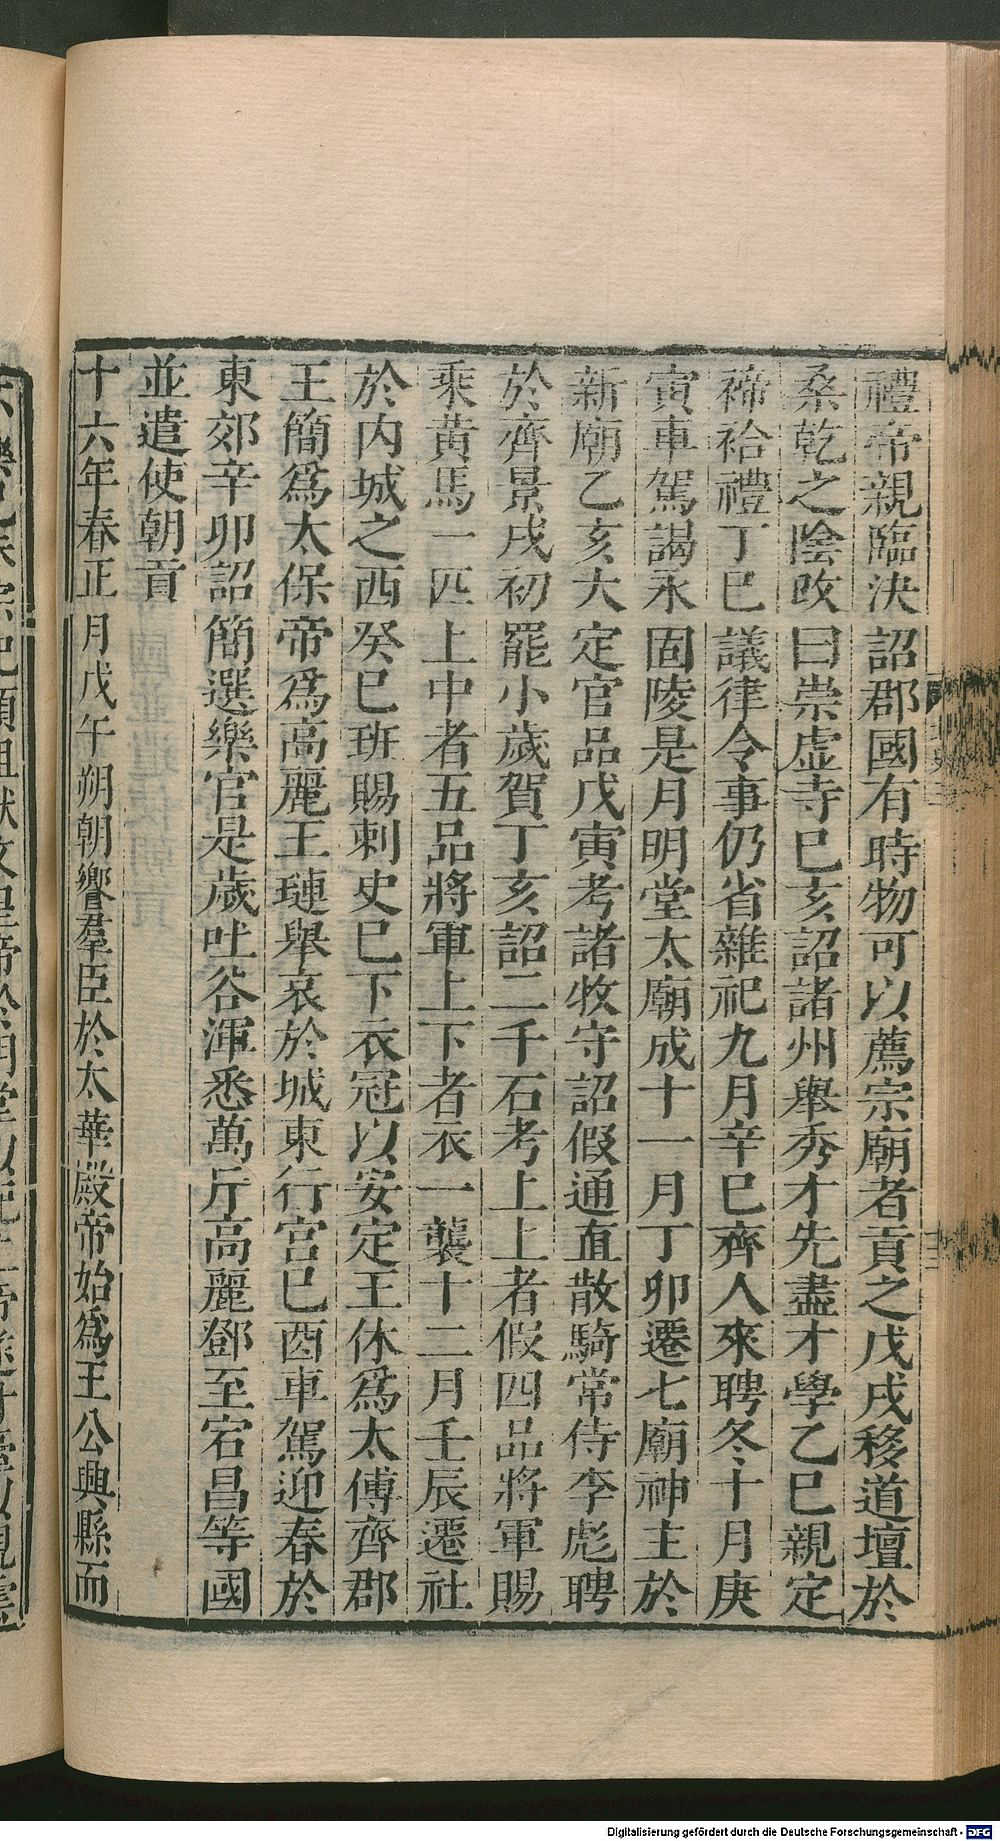 禮帝親臨決詔郡國有時物可以薦宗廟者貢之戊戌移道壇於
桑乾之陰改曰崇虛寺巳亥詔諸州舉秀才先盡才學乙巳親定
禘祫禮丁巳議律令事仍省雜祀九月辛巳齊人來聘冬十月庚
寅車駕謁永固陵是月明堂太廟成十一月丁卯遷七廟神主於
新廟乙亥大定官品戊寅考諸牧守詔假通直散騎常侍李彪聘
於齊景戌初罷小歲賀丁亥詔二千石考上上者假四品將軍賜
乘黃馬一匹上中者五品將軍上下者衣一襲十二月壬辰遷社
於內城之西癸巳班賜刺史巳下衣冠以安定王休爲太傅齊郡
王簡爲太保帝爲高麗王璉舉哀於城東行宮巳酉車駕迎春於
東郊辛卯詔簡選樂官是歲吐谷渾悉萬斤高麗鄧至宕昌等國
並遣使朝貢
十六年春正月戊午朔朝饗羣臣於太華殿帝始爲王公興縣而
Digitalisierung gefördert durch die Deutsche Forschungsgemeinschaft - DFG